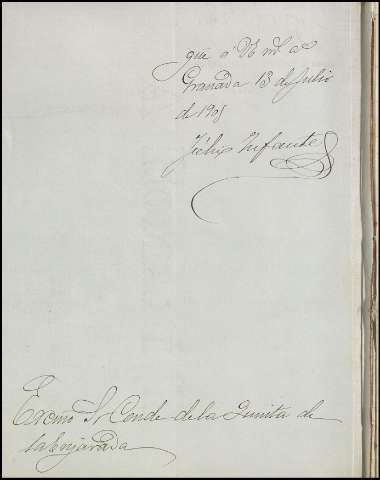 que a VE ml as
Granada 13 de Julio
de 1905
Félix Infante
Excmo Sr Conde de la Quinta de
la Enjarada